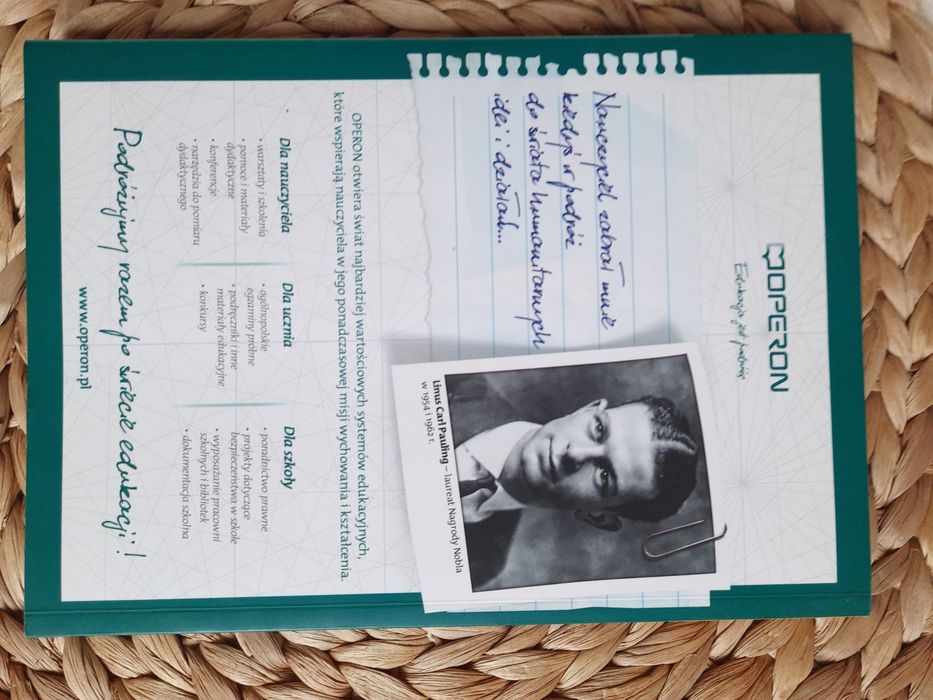 OPERON
Edukacja jest podróżą
Nauczyciel zabrał mnie
kiedyś w podróż
do świata humanitarnych
idei i działań...
Linus Carl Pauling – laureat Nagrody Nobla
w 1954 i 1962 r.
OPERON otwiera świat najbardziej wartościowych systemów edukacyjnych,
które wspierają nauczyciela w jego ponadczasowej misji wychowania i kształcenia.
Dla nauczyciela
• warsztaty i szkolenia
• pomoce i materiały
dydaktyczne
• konferencje
• narzędzia do pomiaru
dydaktycznego
Dla ucznia
• ogólnopolskie
egzaminy próbne
• podręczniki i inne
materiały edukacyjne
• konkursy
Dla szkoły
• poradnictwo prawne
• projekty dotyczące
bezpieczeństwa w szkole
• wyposażanie pracowni
szkolnych i bibliotek
• dokumentacja szkolna
Podróżujmy razem po świecie edukacji!
www.operon.pl